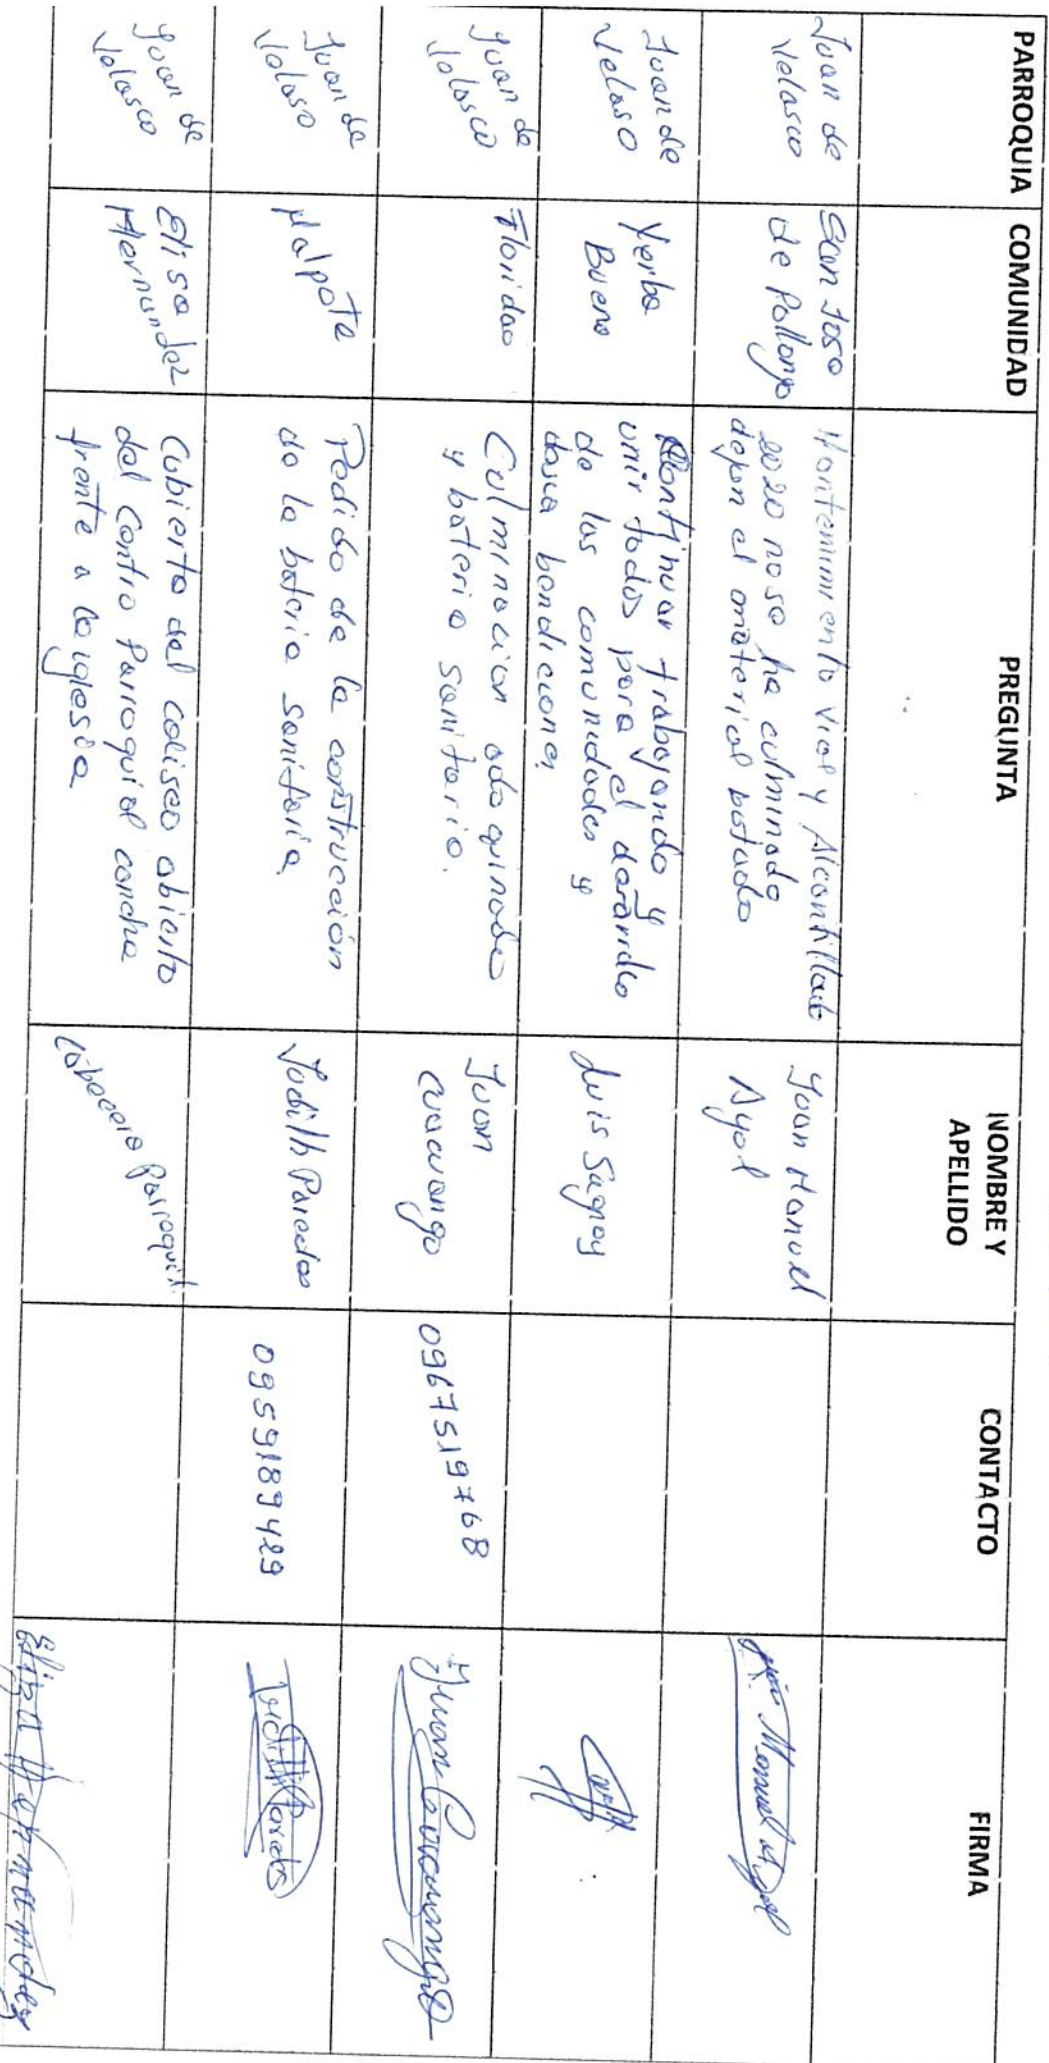 PARROQUIA COMUNIDAD PREGUNTA NOMBRE Y APELLIDO CONTACTO FIRMA
Juan de
Velasco
San Jose
de Pollongo
Mantenimiento Vial y Alcantillado
2020 no se ha culminado
dejan el material botado
Juan Manuel
Ayol
Juan de
Velaso
Yerba
Buena
Continuar trabajando y
unir todos para el dararrollo
de las comunidades y
bendiciones
Luis Sagñay
Juan de
Velasco
Floridao
Culminacion adoquinado
y bateria sanitario.
Juan
cuacuango
0967519768
Juan Cuacuango
Juan de
Velaso
Malpote
Pedido de la construcción
de la bateria sanitaria
Judith Paredes
0959189429
Judith Paredes
Juan de
Velasco
Elisa
Hernandez
Cubierta del coliseo abierto
del Centro Parroquial cancha
frente a la iglesia
Cabecera Parroquial
Eliza Hernandez